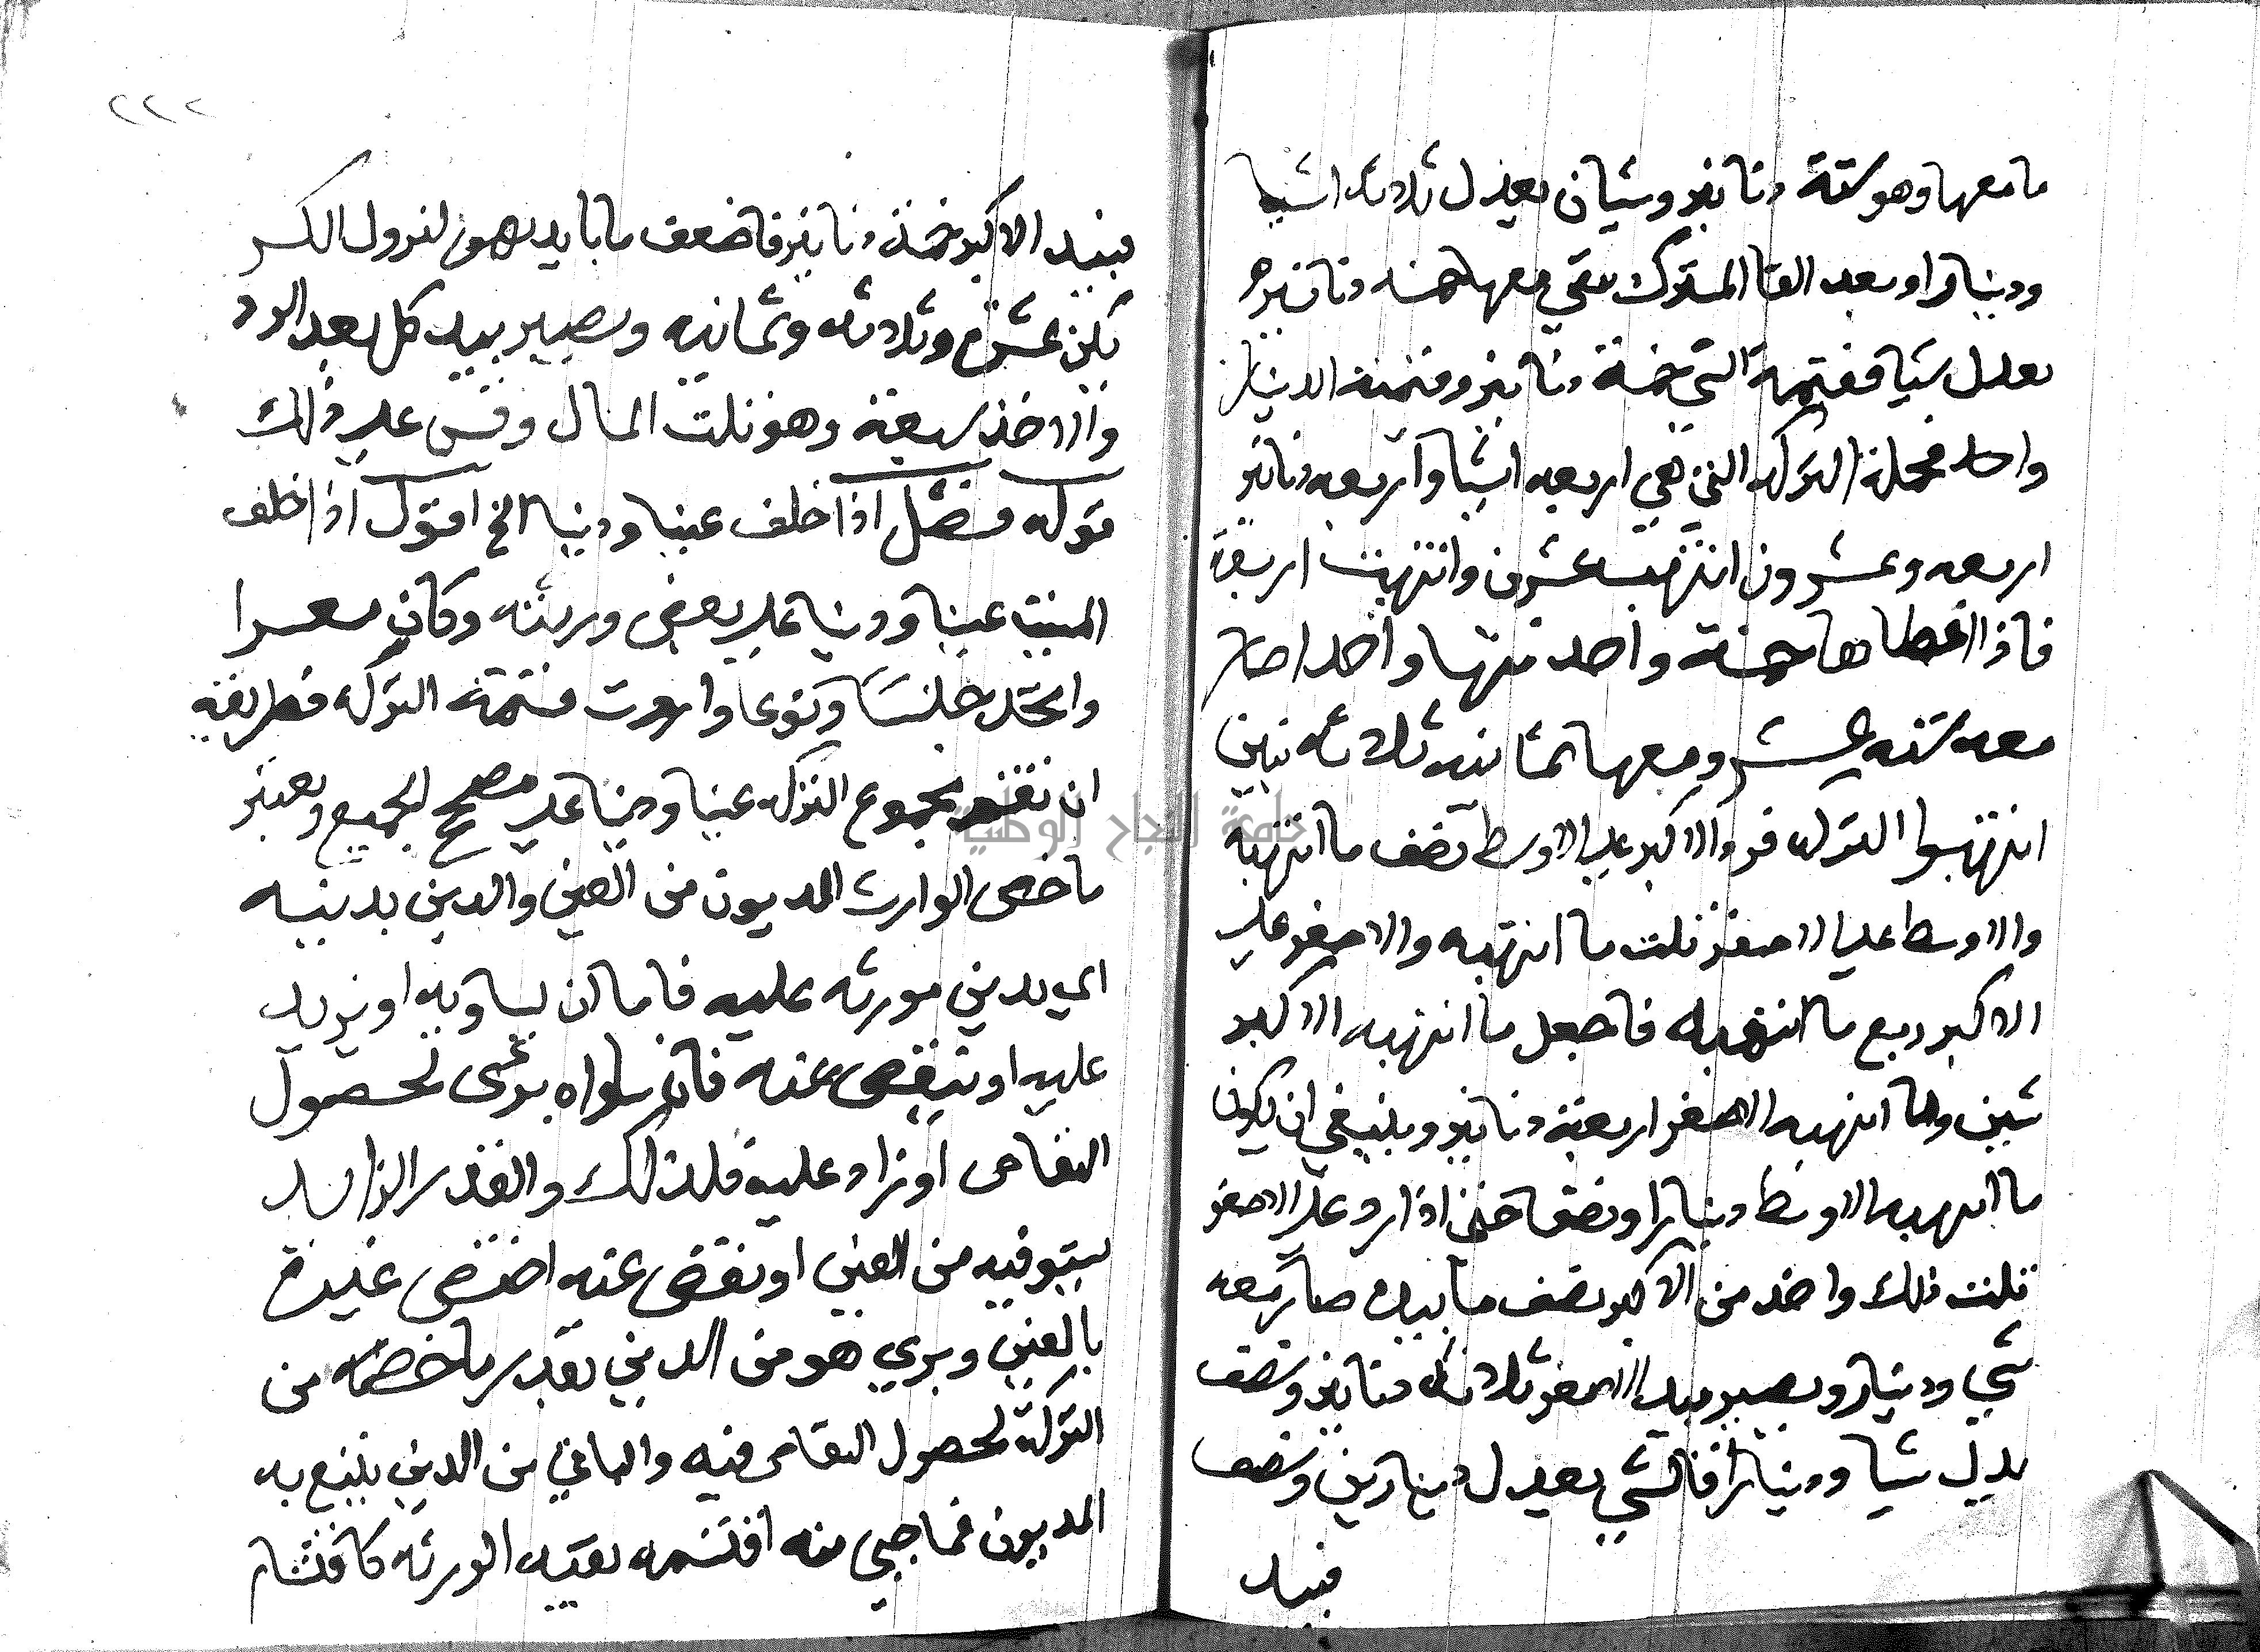 ما معها وهو ستة دنانير وشيان يعدل ثلاثة اشيا
ودينارا وبعد القا المشترك يبقى معها خمسة دنانير
يعدل شيا فقيمة الشي خمسة دنانير وقيمة الدينار
واحد فجملة التركة التي هي اربعه اشيا واربعه دنانير
اربعه وعشرون انتهب عشرين وانتهبت اربعة
فاذا اعطاها خمسة واحد منها واحدا صار
معه ستة عشر ومعها ثمانيه ثلاثة بنين
انتهبوا التركه فرد الاكبر على الاوسط نصف ما انتهبه
والاوسط على الاصغر ثلث ما انتهبه والاصغر على
الاكبر ربع ما انتهبه فاجعل ما انتهبه الاكبر
شيين وما انتهبه الاصغر اربعة دنانير وينبغي ان يكون
ما انتهبه الاوسط دينارا ونصفا حتى اذا رد على الاصغر
ثلث ذلك واخذ من الاكبر نصف ما بيده صار معه
شي ودينار ويصير بيد الاصغر ثلاثة دنانير ونصف
يعدل شيا ودينارا فالشي يعدل دينارين ونصف
فبيد
٢٢٢
فبيد الاكبر خمسة دنانير فاضعف ما بايديهم لنزول الكسر
تكن عشرة وثلاثه وثمانيه ويصير بيد كل بعد الرد
والاخذ سبعة وهو ثلث المال وقس على ذلك
قوله فصل اذا خلف عينا ودينا الخ اقول اذا خلف
الميت عينا ودينا على بعض ورثته وكان معسرا
واتحد جنسا ونوعا واردت قسمة التركه فطريقه
ان تقسم مجموع التركه عينا ودينا على مصحح الجميع وتعتبر
ما خص الوارث المديون من العين والدين بدينه
اي بدين مورثه عليه فاما ان يساويه او يزيد
عليه او ينقص عنه فان ساواه بري لحصول
التقاص او زاد عليه فكذلك والقدر الزايد
يستوفيه من العين او نقص عنه اختص غيره
بالعين وبري هو من الدين بقدر ما خصه من
التركة لحصول التقاص فيه والباقي من الدين يتبع به
المديون فما جبي منه اقتسمه بقيه الورثه كاقتسام
جامعة النجاح الوطنية